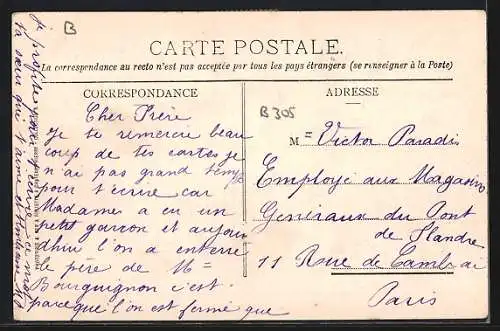 B
CARTE POSTALE.
La correspondance au recto n'est pas acceptée par tous les pays étrangers (se renseigner à la Poste)
CORRESPONDANCE
Cher Frère
Je te remercie beau
coup de tes cartes je
n'ai pas grand temps
pour t'écrire car
Madame a eu un
petit garçon et aujour
dhui l'on a enterré
le père de M=
Bourguignon c'est
parceque l'on est fermé que
je profite pour
ta sœur qui t'aime
ADRESSE
B305
M= Victor Paradis
Employé aux Magasins
Généraux du Pont
de Flandre
11 Rue de Cambrai
Paris